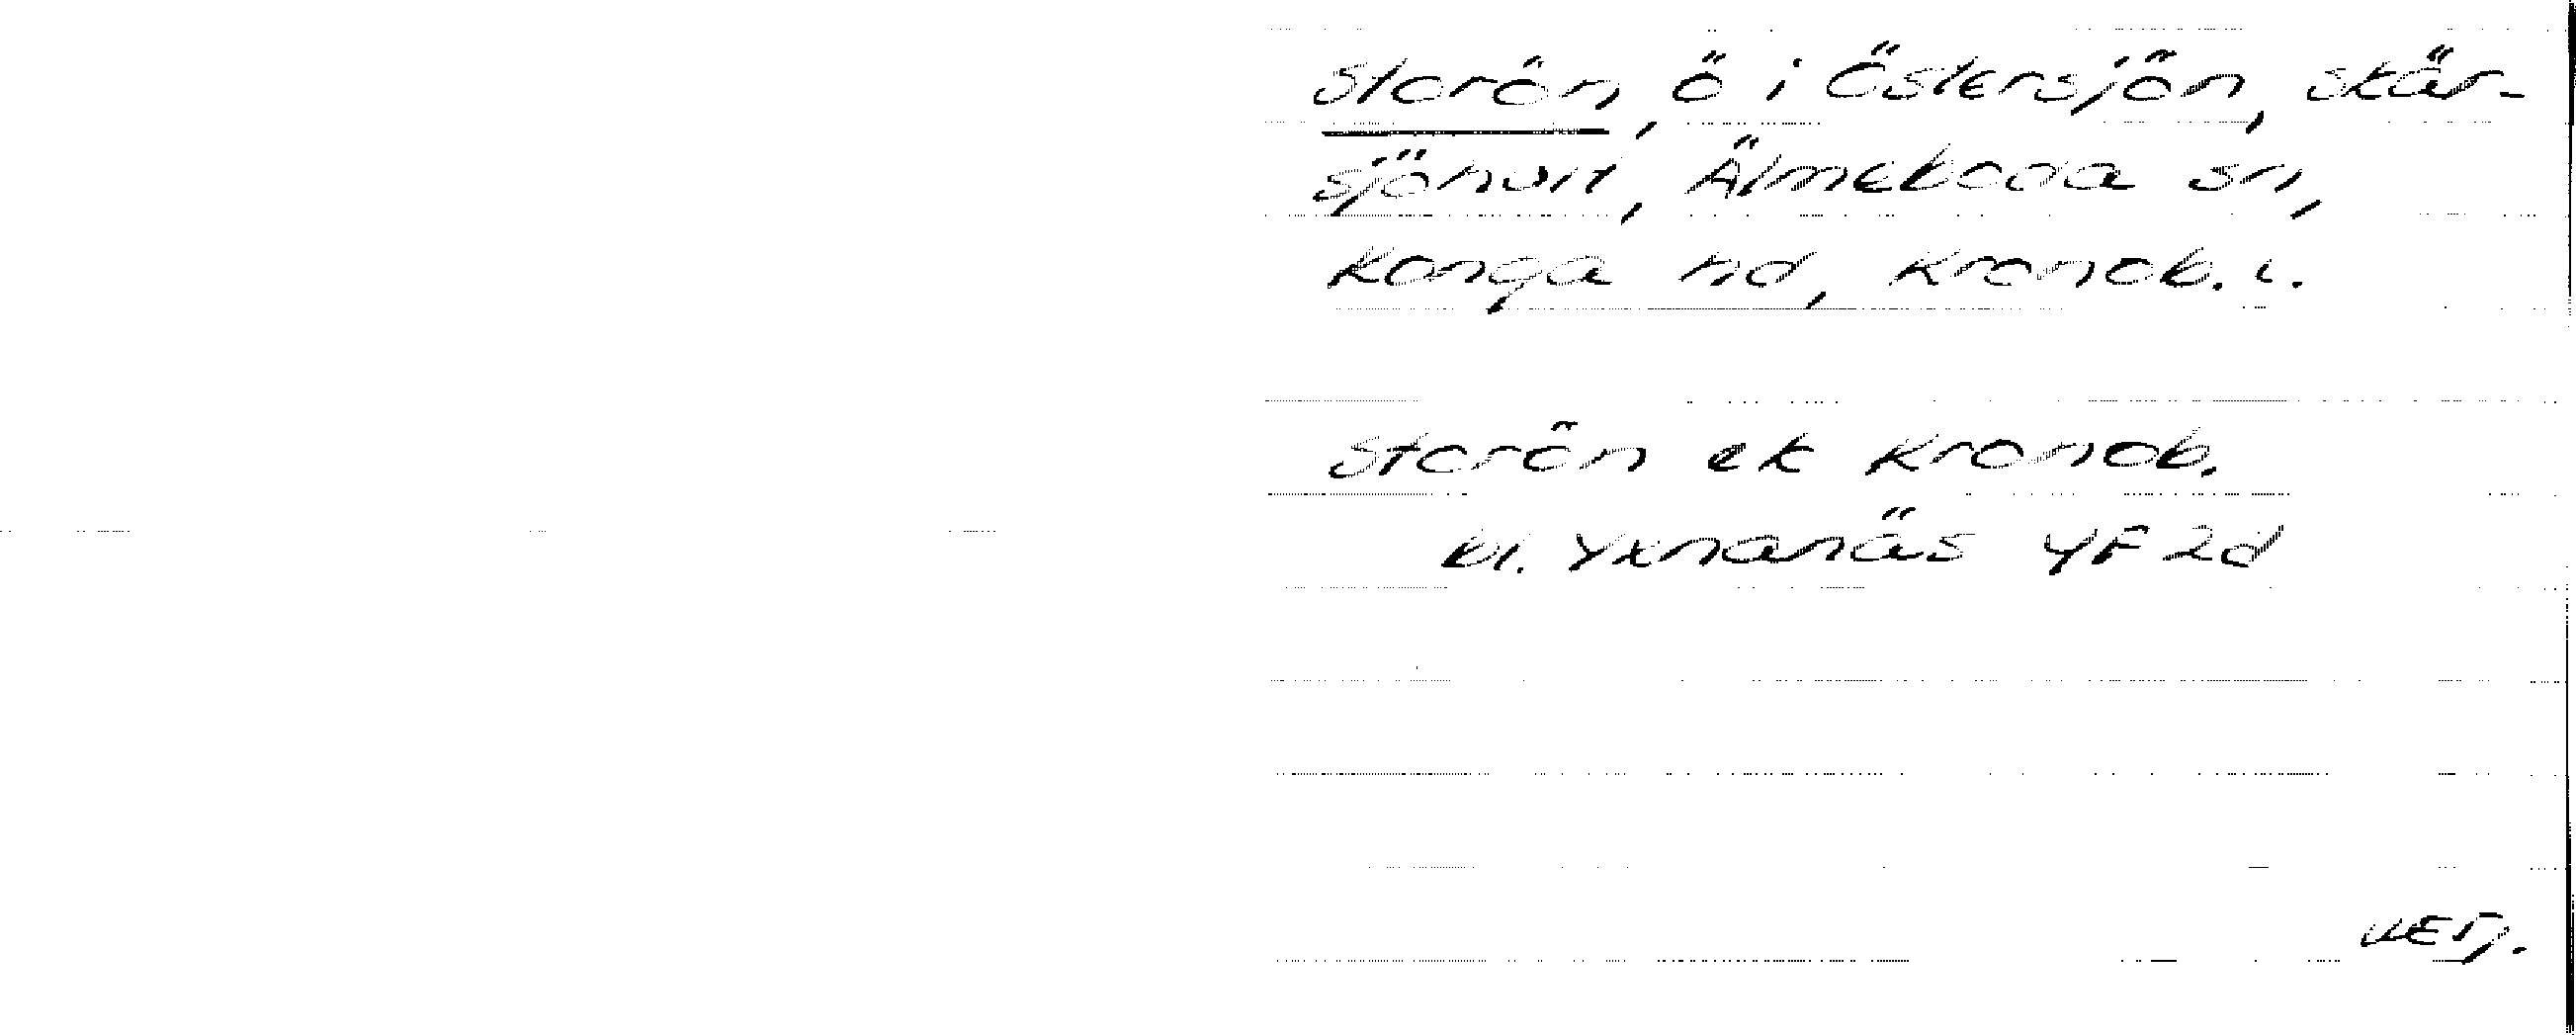 Storön, ö i Östersjön, Skär-
sjöhult, Älmeboda sn,
Konga hd, Kronob. l.
Storön ek Kronob.
bl. Yxnanäs 4F 2d